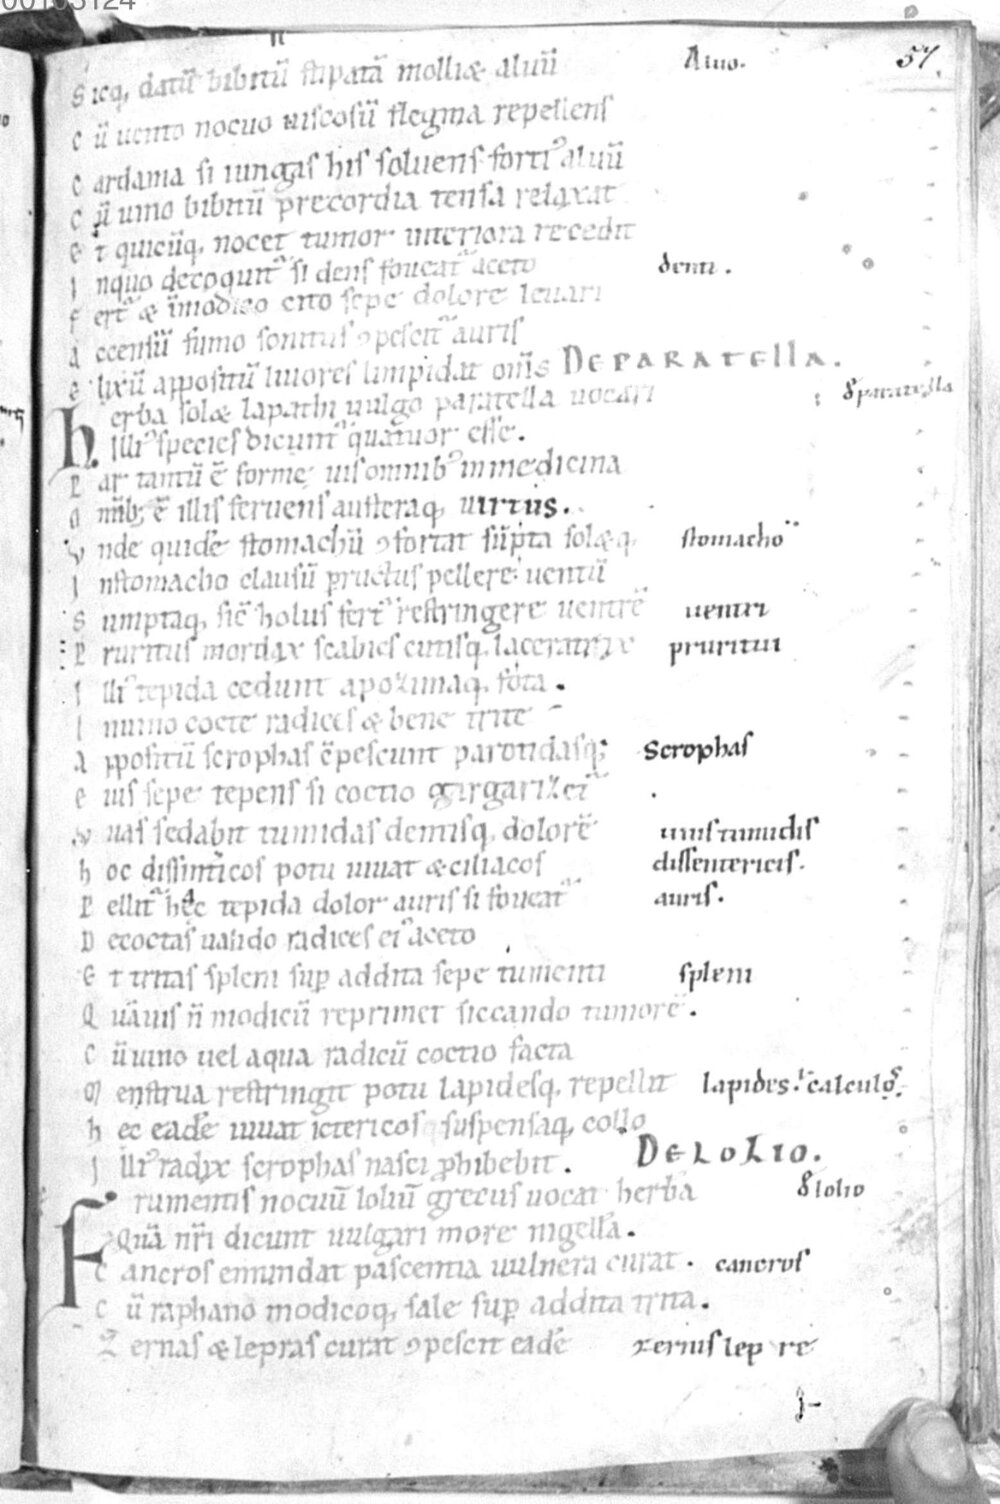 00103124
57
S icq, datū bibitū stipatā molliæ aluū Aluo.
C ū uento nocuo uiscosū flegma repellens
C ardama si iungas his soluens fortiꝰ aluū
C ū uino bibitū precordia tensa relaxat
E t quicūq, nocet tumor interiora recedit
I nquo decoquitᷣ si dens foueatᷣ aceto denti.
F ertᷣ & īmodico cito sepe dolore leuari
A ccensū fumo sonitus ꝯpescitᷣ auris
E lixū appositū liuores limpidat om̄s DE PARATELLA.
H erba solæ lapathi uulgo paratella uocari paratella
Illiꝰ species dicuntᷣ quatuor esse.
P ar tantū ē forme; uis omnibꝰ in medicina
O mīb; ē illis feruens austeraq, uirtus.
V nde quidē stomachū ꝯfortat sūpta solæq, stomacho
I nstomacho clausū p ructus pellere uentū
S umptaq, sic̄ holus fertᷣ restringere uentrē uentri
P ruritus mordax scabies cutisq, laceratrix pruritui
I lliꝰ tepida cedunt apozimaq, fota.
I nuino cocte radices & bene trite
A ppositū scrophas cōpescunt parotidasq; Scrophas
E ius sepe tepens si coctio girgarizetᷣ
V uas sedabit tumidas dentisq, dolorē uuis tumidis
H oc dissint̄icos potu iuuat & ciliacos dissentericis.
P ellitᷣ hec tepida dolor auris si foueatᷣ auris.
D ecoctas ualido radices eiꝰ aceto
E t tritas spleni suꝑ addita sepe tumenti spleni
Q uāuis n̄ modicū reprimet siccando tumorē.
C ū uino uel aqua radicū coctio facta
M enstrua restringit potu lapidesq, repellit lapides. ł calculos.
H ec eadē iuuat ictericos suspensaq, collo
I lliꝰ radix scrophas nasci ꝓhibebit. DE LOLIO.
F rumentis nocuū loliū grecus uocat herbā lolio
Quā nr̄i dicunt uulgari more nigellā.
C ancros emundat pascentia uulnera curat. cancros
C ū raphano modicoq, sale suꝑ addita trita.
Z ernas & lepras curat ꝯpescit eadē zernis lepre